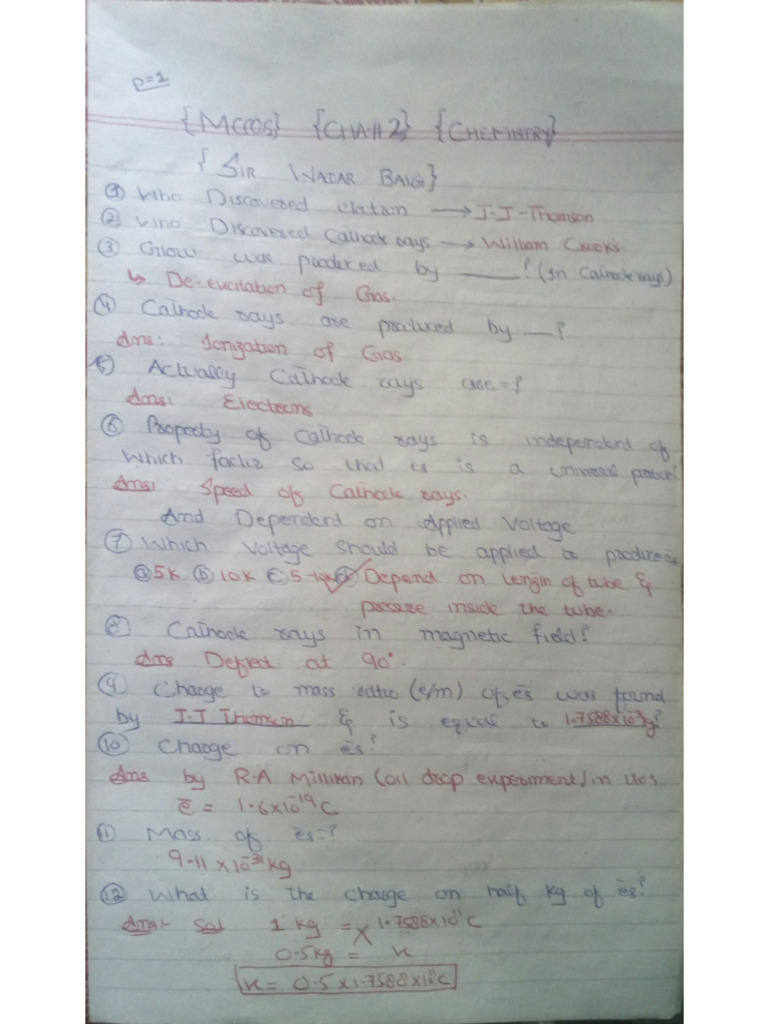 P=1
{MCQS} {CHAP#2} {CHEMISTRY}
{SIR WAQAR BAIG}
① Who Discovered electron → J.J-Thomson
② Who Discovered Cathode rays → William Crooks.
③ Glow was produced by ____? (In Cathode rays)
↳ De-excitation of Gas.
④ Cathode rays are produced by __?
Ans: Ionization of Gas
⑤ Actually Cathode rays are=?
Ans: Electrons
⑥ Property of Cathode rays is independent of
which factor so that is is a universal
Ans: Speed of Cathode rays.
And Dependent on Applied Voltage
⑦ Which Voltage should be applied to produce
ⓐ 5K ⓑ 10K ⓒ 5-10K ⓓ Depend on length of tube &
pressure inside the tube.
⑧ Cathode rays in magnetic field?
Ans Deflect at 90°.
⑨ Charge to mass ratio (e/m) of ēs was found
by J.J Thomson & is equal to
⑩ Charge on ēs?
Ans by R.A Millikan (oil drop experiment) in
ē = 1.6x10⁻¹⁹C
⑪ Mass of ēs=?
9.11 x10⁻³¹ kg
⑫ What is the charge on half kg of ēs?
Ans:- Sol 1 kg = 1.7588x10¹¹C
X
0.5kg = x
x = 0.5 x1.7588x10¹¹C